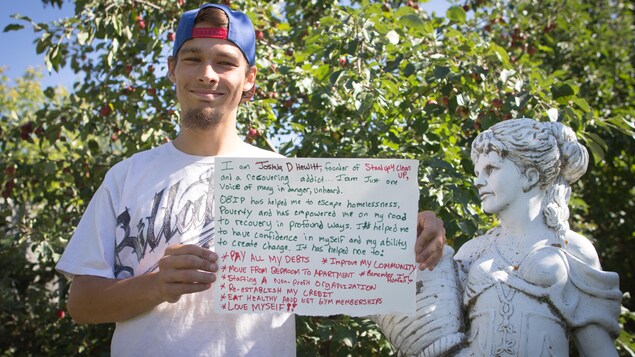 I am Joshua D Hewitt, founder of Stand up 4 Clean UP,
and a recovering addict... I am Just one
voice of many in anger, unheard.
OBIP has helped me to escape homelessness,
Poverty and has empowered me on my road
to recovery in profound ways. It has helped me
to have confidence in myself and my ability
to create change. It has helped me to:
*PAY ALL MY DEBTS *IMPROVE MY COMMUNITY
*MOVE FROM BEDROOM TO APARTMENT *Remember I'm HUMAN!
*Starting A Non-Profit ORGANIZATION
*Re-ESTABLISH MY CREDIT
*EAT HEALTHY AND GET GYM MEMBERSHIPS
*LOVE MYSELF!!